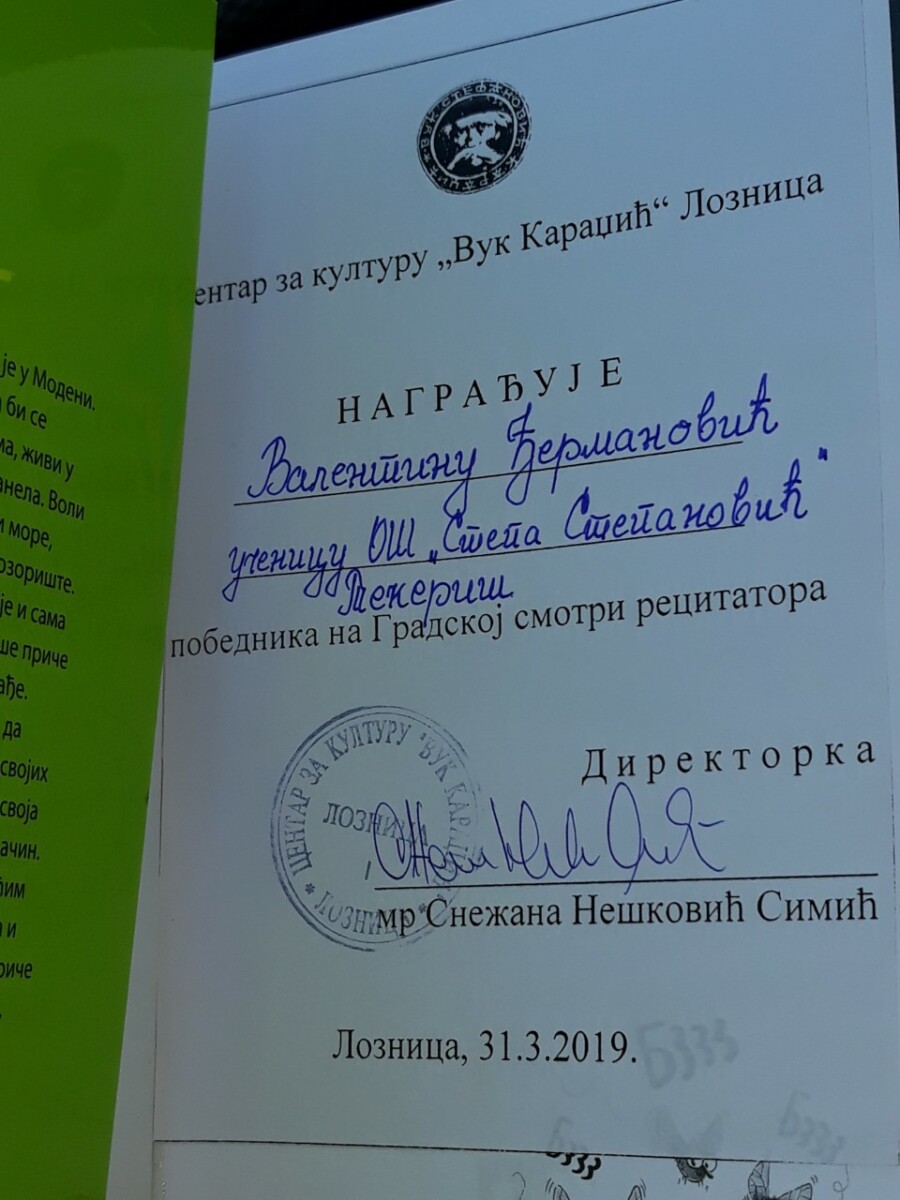 је у Модени.
би се
ма, живи у
анела. Воли
и море,
озориште.
је и сама
ше приче
ађе.
да
својих
своја
ачин.
ђим
а и
риче
ВУК СТЕФАНОВИЋ КАРАЏИЋ
ентар за културу „Вук Караџић“ Лозница
НАГРАЂУЈЕ
Валентину Ђермановић
ученицу ОШ „Степа Степановић"
Текериш
победника на Градској смотри рецитатора
Директорка
ЦЕНТАР ЗА КУЛТУРУ "ВУК КАРАЏ
ЛОЗНИЦА
ЛОЗНИЦА
мр Снежана Нешковић Симић
Лозница, 31.3.2019.
Бззз
Бззз
Бззз